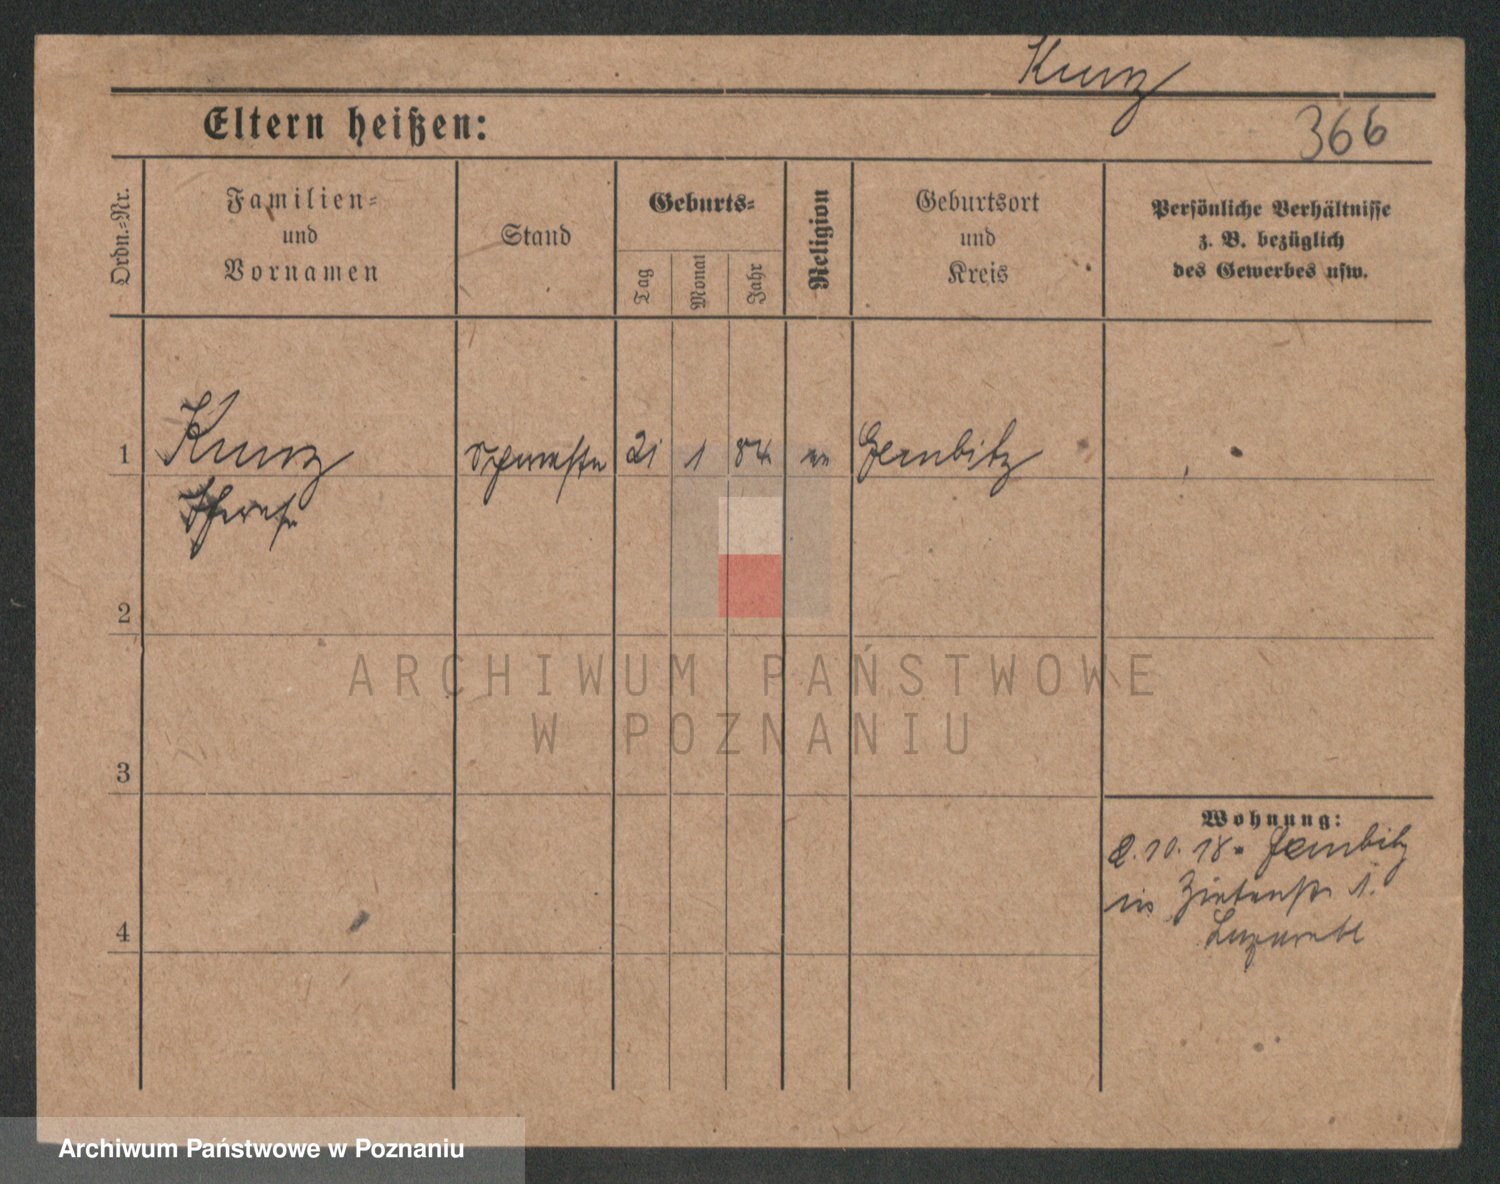 Kunz
366
Eltern heißen:
Ordn.-Nr.
Familien-
und
Vornamen
Stand
Geburts-
Tag
Monat
Jahr
Religion
Geburtsort
und
Kreis
Persönliche Verhältnisse
z. B. bezüglich
des Gewerbes usw.
1 Kunz Schwester 21 1 84 ev Gembitz
2
3
Wohnung:
2.10.18. Gembitz
in Zietenstr 1.
4
Lazarett
ARCHIWUM PAŃSTWOWE
W POZNANIU
Archiwum Państwowe w Poznaniu